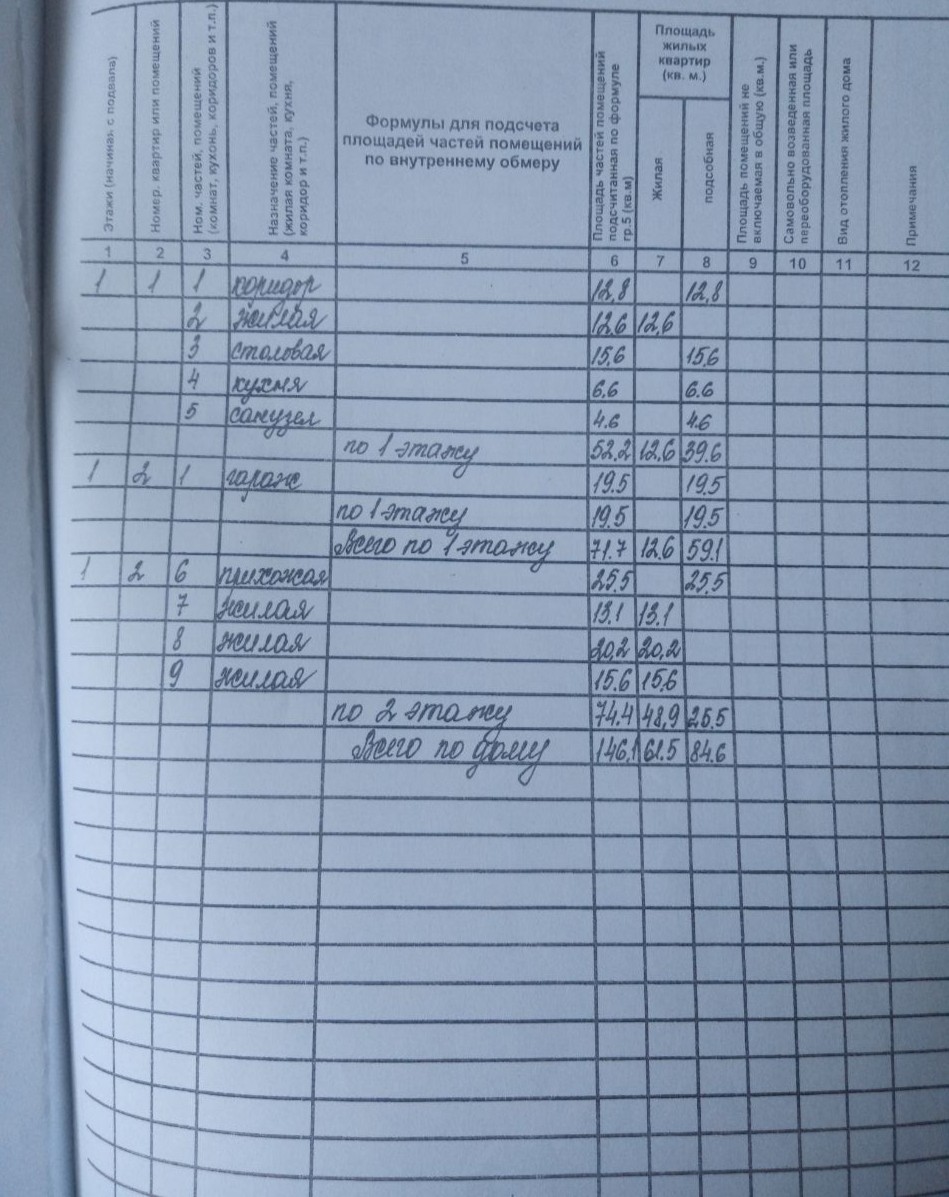 Этажи (начиная с подвала)
Номер. квартир или помещений
Ном. частей, помещений
(комнат, кухонь, коридоров и т.п.)
Назначение частей, помещений
(жилая комната, кухня,
коридор и т.п.)
Формулы для подсчета
площадей частей помещений
по внутреннему обмеру
Площадь частей помещений
подсчитанная по формуле
гр.5 (кв.м)
Площадь
жилых
квартир
(кв. м.)
Жилая
подсобная
Площадь помещений не
включаемая в общую (кв.м.)
Самовольно возведенная или
переоборудованная площадь
Вид отопления жилого дома
Примечания
1 2 3 4 5 6 7 8 9 10 11 12
1 1 1 коридор 12,8 12,8
2 жилая 12.6 12,6
3 столовая 15.6 15.6
4 кухня 6.6 6.6
5 санузел 4.6 4.6
по 1 этажу 52.2 12.6 39.6
1 2 1 гараж 19.5 19.5
по 1 этажу 19.5 19.5
Всего по 1 этажу 71.7 12.6 59.1
1 2 6 прихожая 25.5 25.5
7 жилая 13.1 13.1
8 жилая 20,2 20,2
9 жилая 15.6 15.6
по 2 этажу 74.4 48,9 25.5
Всего по дому 146,1 61.5 84.6